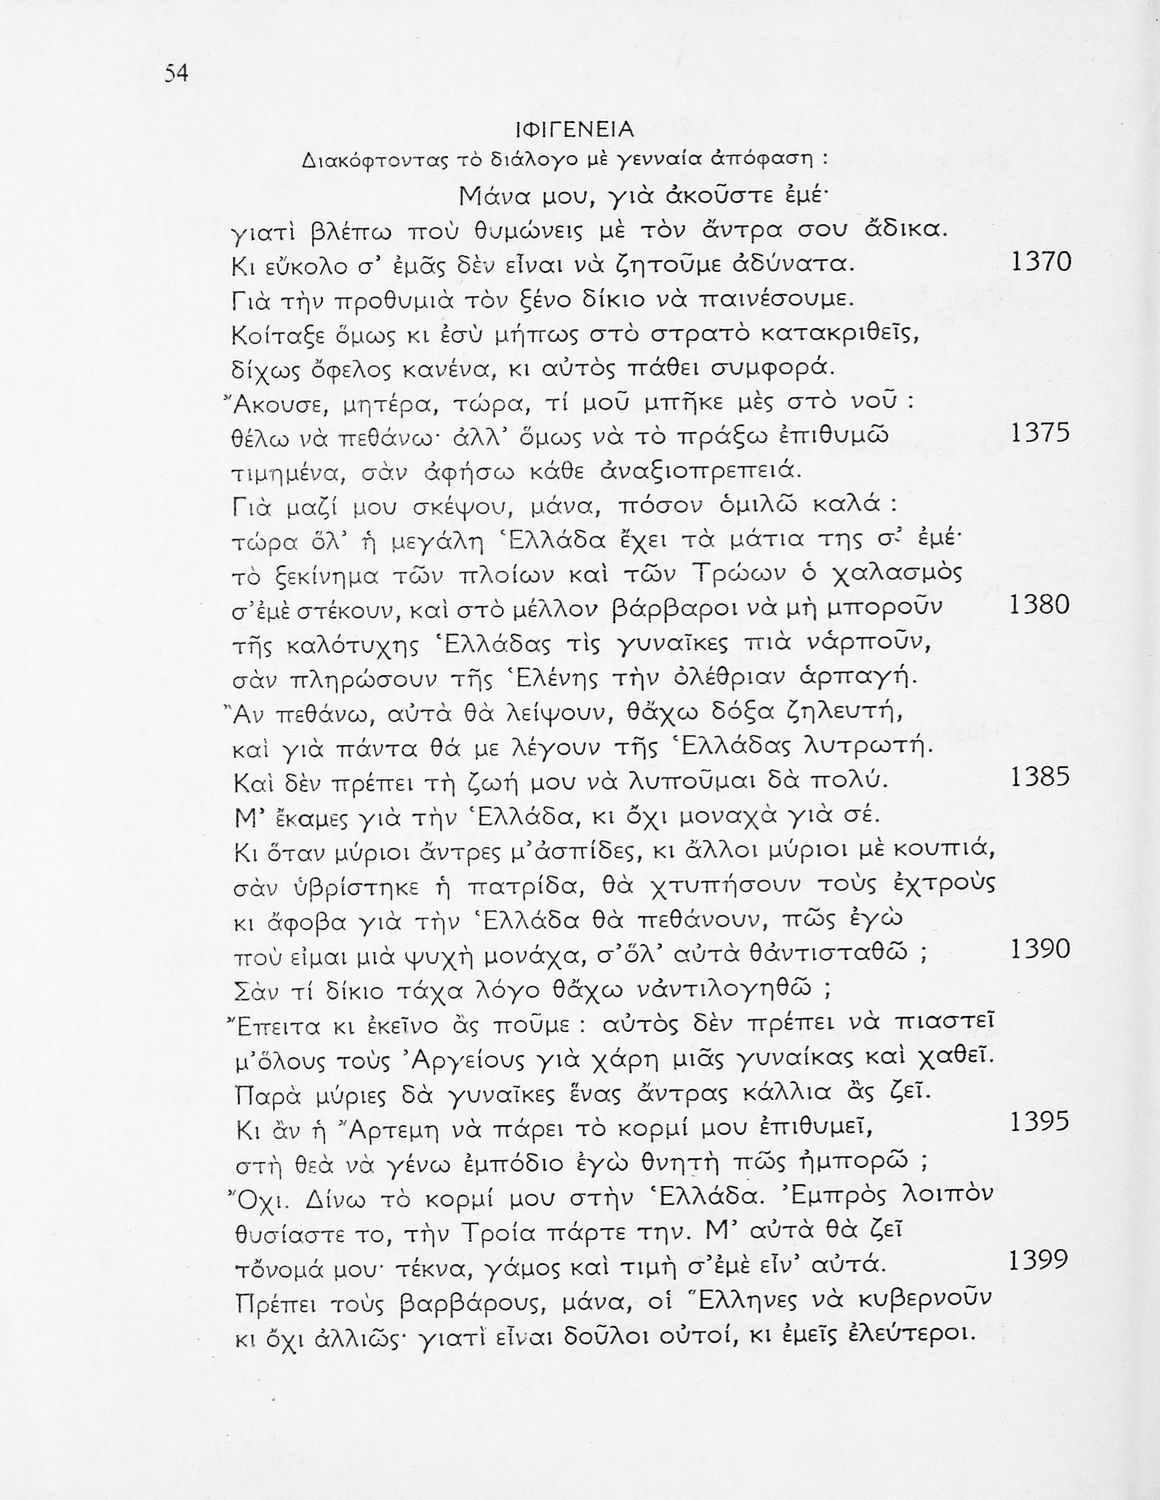 54
ΙΦΙΓΕΝΕΙΑ
Διακόφτοντας τὸ διάλογο μὲ γενναία ἀπόφαση :
Μάνα μου, γιὰ ἀκοῦστε ἐμέ·
γιατὶ βλέπω ποὺ θυμώνεις μὲ τὸν ἄντρα σου ἄδικα.
Κι εὔκολο σ’ ἐμᾶς δὲν εἶναι νὰ ζητοῦμε ἀδύνατα. 1370
Γιὰ τὴν προθυμιὰ τὸν ξένο δίκιο νὰ παινέσουμε.
Κοίταξε ὅμως κι ἐσὺ μήπως στὸ στρατὸ κατακριθεῖς,
δίχως ὄφελος κανένα, κι αὐτὸς πάθει συμφορά.
Ἄκουσε, μητέρα, τώρα, τί μοῦ μπῆκε μὲς στὸ νοῦ :
θέλω νὰ πεθάνω· ἀλλ’ ὅμως νὰ τὸ πράξω ἐπιθυμῶ 1375
τιμημένα, σὰν ἀφήσω κάθε ἀναξιοπρεπειά.
Γιὰ μαζί μου σκέψου, μάνα, πόσον ὁμιλῶ καλά :
τώρα ὅλ’ ἡ μεγάλη Ἑλλάδα ἔχει τὰ μάτια της σ’ ἐμέ·
τὸ ξεκίνημα τῶν πλοίων καὶ τῶν Τρώων ὁ χαλασμὸς
σ’ἐμὲ στέκουν, καὶ στὸ μέλλον βάρβαροι νὰ μὴ μποροῦν 1380
τῆς καλότυχης Ἑλλάδας τὶς γυναῖκες πιὰ νἁρποῦν,
σὰν πληρώσουν τῆς Ἑλένης τὴν ὀλέθριαν ἁρπαγή.
Ἂν πεθάνω, αὐτὰ θὰ λείψουν, θἄχω δόξα ζηλευτή,
καὶ γιὰ πάντα θά με λέγουν τῆς Ἑλλάδας λυτρωτή.
Καὶ δὲν πρέπει τὴ ζωή μου νὰ λυποῦμαι δὰ πολύ. 1385
Μ’ ἔκαμες γιὰ τὴν Ἑλλάδα, κι ὄχι μοναχὰ γιὰ σέ.
Κι ὅταν μύριοι ἄντρες μ’ἀσπίδες, κι ἄλλοι μύριοι μὲ κουπιά,
σὰν ὑβρίστηκε ἡ πατρίδα, θὰ χτυπήσουν τοὺς ἐχτροὺς
κι ἄφοβα γιὰ τὴν Ἑλλάδα θὰ πεθάνουν, πῶς ἐγὼ
ποὺ εἶμαι μιὰ ψυχὴ μονάχα, σ’ὅλ’ αὐτὰ θἀντισταθῶ ; 1390
Σὰν τί δίκιο τάχα λόγο θἄχω νἀντιλογηθῶ ;
Ἔπειτα κι ἐκεῖνο ἂς ποῦμε : αὐτὸς δὲν πρέπει νὰ πιαστεῖ
μ’ὅλους τοὺς Ἀργείους γιὰ χάρη μιᾶς γυναίκας καὶ χαθεῖ.
Παρὰ μύριες δὰ γυναῖκες ἕνας ἄντρας κάλλια ἂς ζεῖ.
Κι ἂν ἡ Ἄρτεμη νὰ πάρει τὸ κορμί μου ἐπιθυμεῖ, 1395
στὴ θεὰ νὰ γένω ἐμπόδιο ἐγὼ θνητὴ πῶς ἠμπορῶ ;
Ὄχι. Δίνω τὸ κορμί μου στὴν Ἑλλάδα. Ἐμπρὸς λοιπὸν
θυσίαστε το, τὴν Τροία πάρτε την. Μ’ αὐτὰ θὰ ζεῖ
τὄνομά μου· τέκνα, γάμος καὶ τιμὴ σ’ἐμὲ εἶν’ αὐτά. 1399
Πρέπει τοὺς βαρβάρους, μάνα, οἱ Ἕλληνες νὰ κυβερνοῦν
κι ὄχι ἀλλιῶς· γιατὶ εἶναι δοῦλοι οὐτοί, κι ἐμεῖς ἐλεύτεροι.